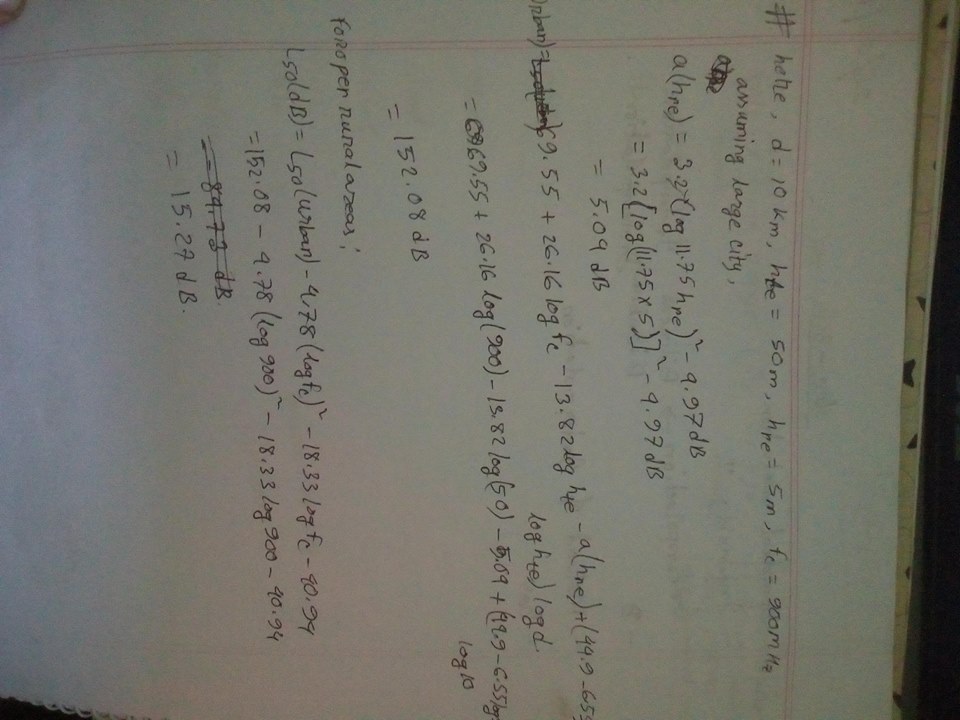 # here, d = 10 km, hte = 50m, hre = 5m, fc = 900MHz
assuming large city,
a(hre) = 3.2(log 11.75 hre)² - 4.97 dB
= 3.2[log(11.75 x 5)]² - 4.97 dB
= 5.09 dB
rban) = 69.55 + 26.16 log fc - 13.82 log hte - a(hre) + (44.9 - 655
log hte) log d.
= 69.55 + 26.16 log(900) - 13.82 log(50) - 5.09 + (44.9 - 6.55 log
log 10
= 152.08 dB
for open rural areas;
L50(dB) = L50(urban) - 4.78 (log fc)² - 18.33 log fc - 40.94
= 152.08 - 4.78 (log 900)² - 18.33 log 900 - 40.94
= 84.73 dB.
= 15.27 dB.